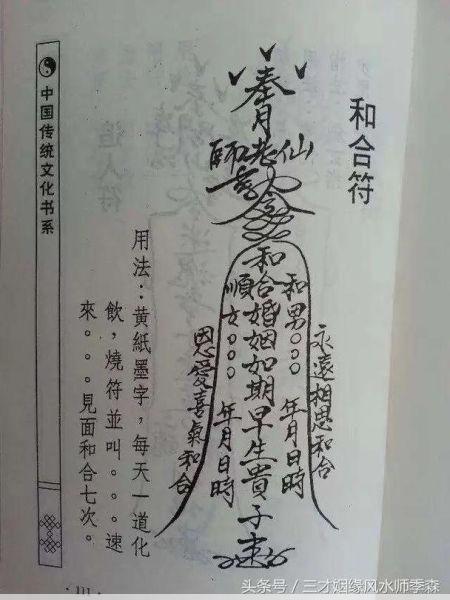 和合符
奉月老仙
師
令
永遠相思和合
和男。。。 年月日時
和合婚姻如期早生貴子
順女。。。 年月日時
恩愛喜氣和合
用法：黄紙墨字，每天一道化
飲，燒符並叫。。。速
來。。。見面和合七次。
中国传统文化书系
·111·
头条号／三才姻缘风水师季森